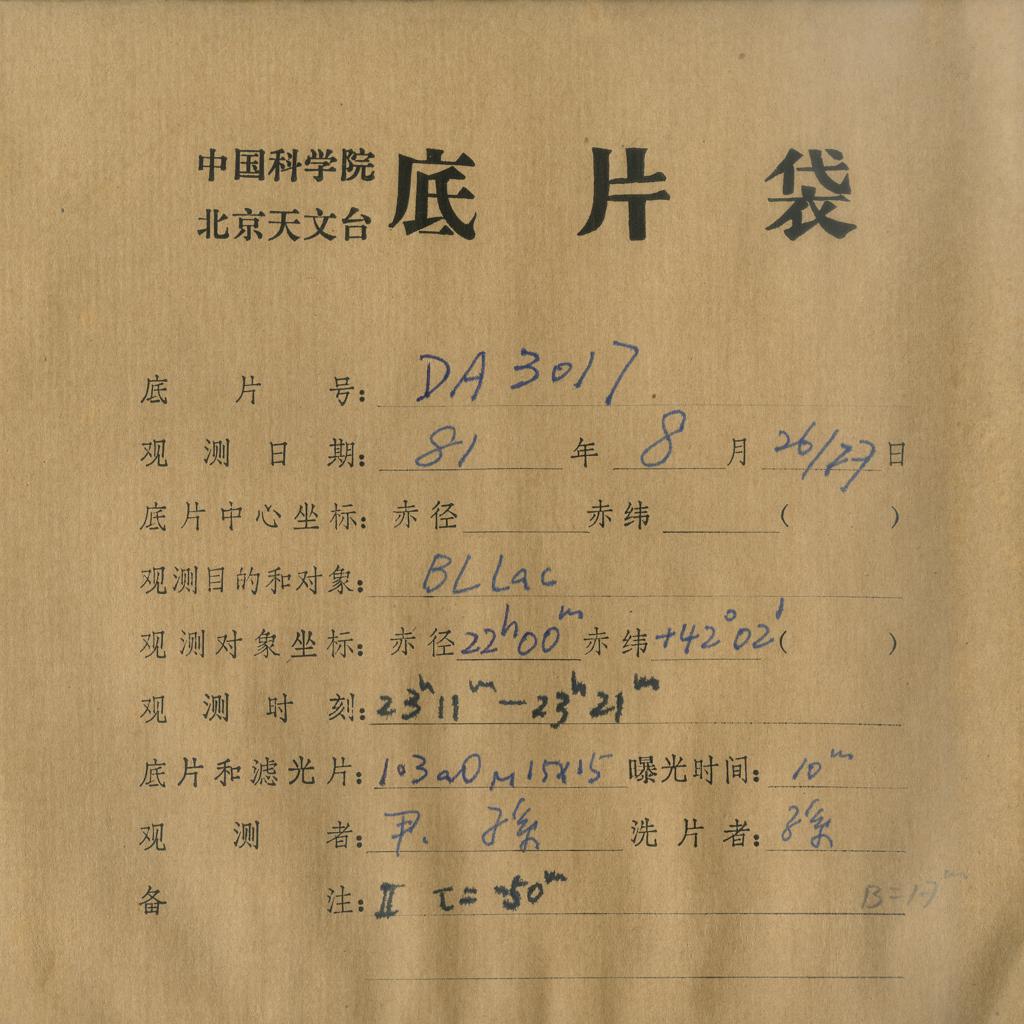 中国科学院
北京天文台
底片袋
底片号: DA 3017
观测日期: 81 年 8 月 26/27 日
底片中心坐标: 赤径 赤纬 ( )
观测目的和对象: BLLac
观测对象坐标: 赤径 22h00m 赤纬 +42°02' ( )
观测时刻: 23h11m — 23h21m
底片和滤光片: 103aO 15x15 曝光时间: 10m
观测者: 尹. 孫 洗片者: 孫
备注: II τ= -50m B=17m